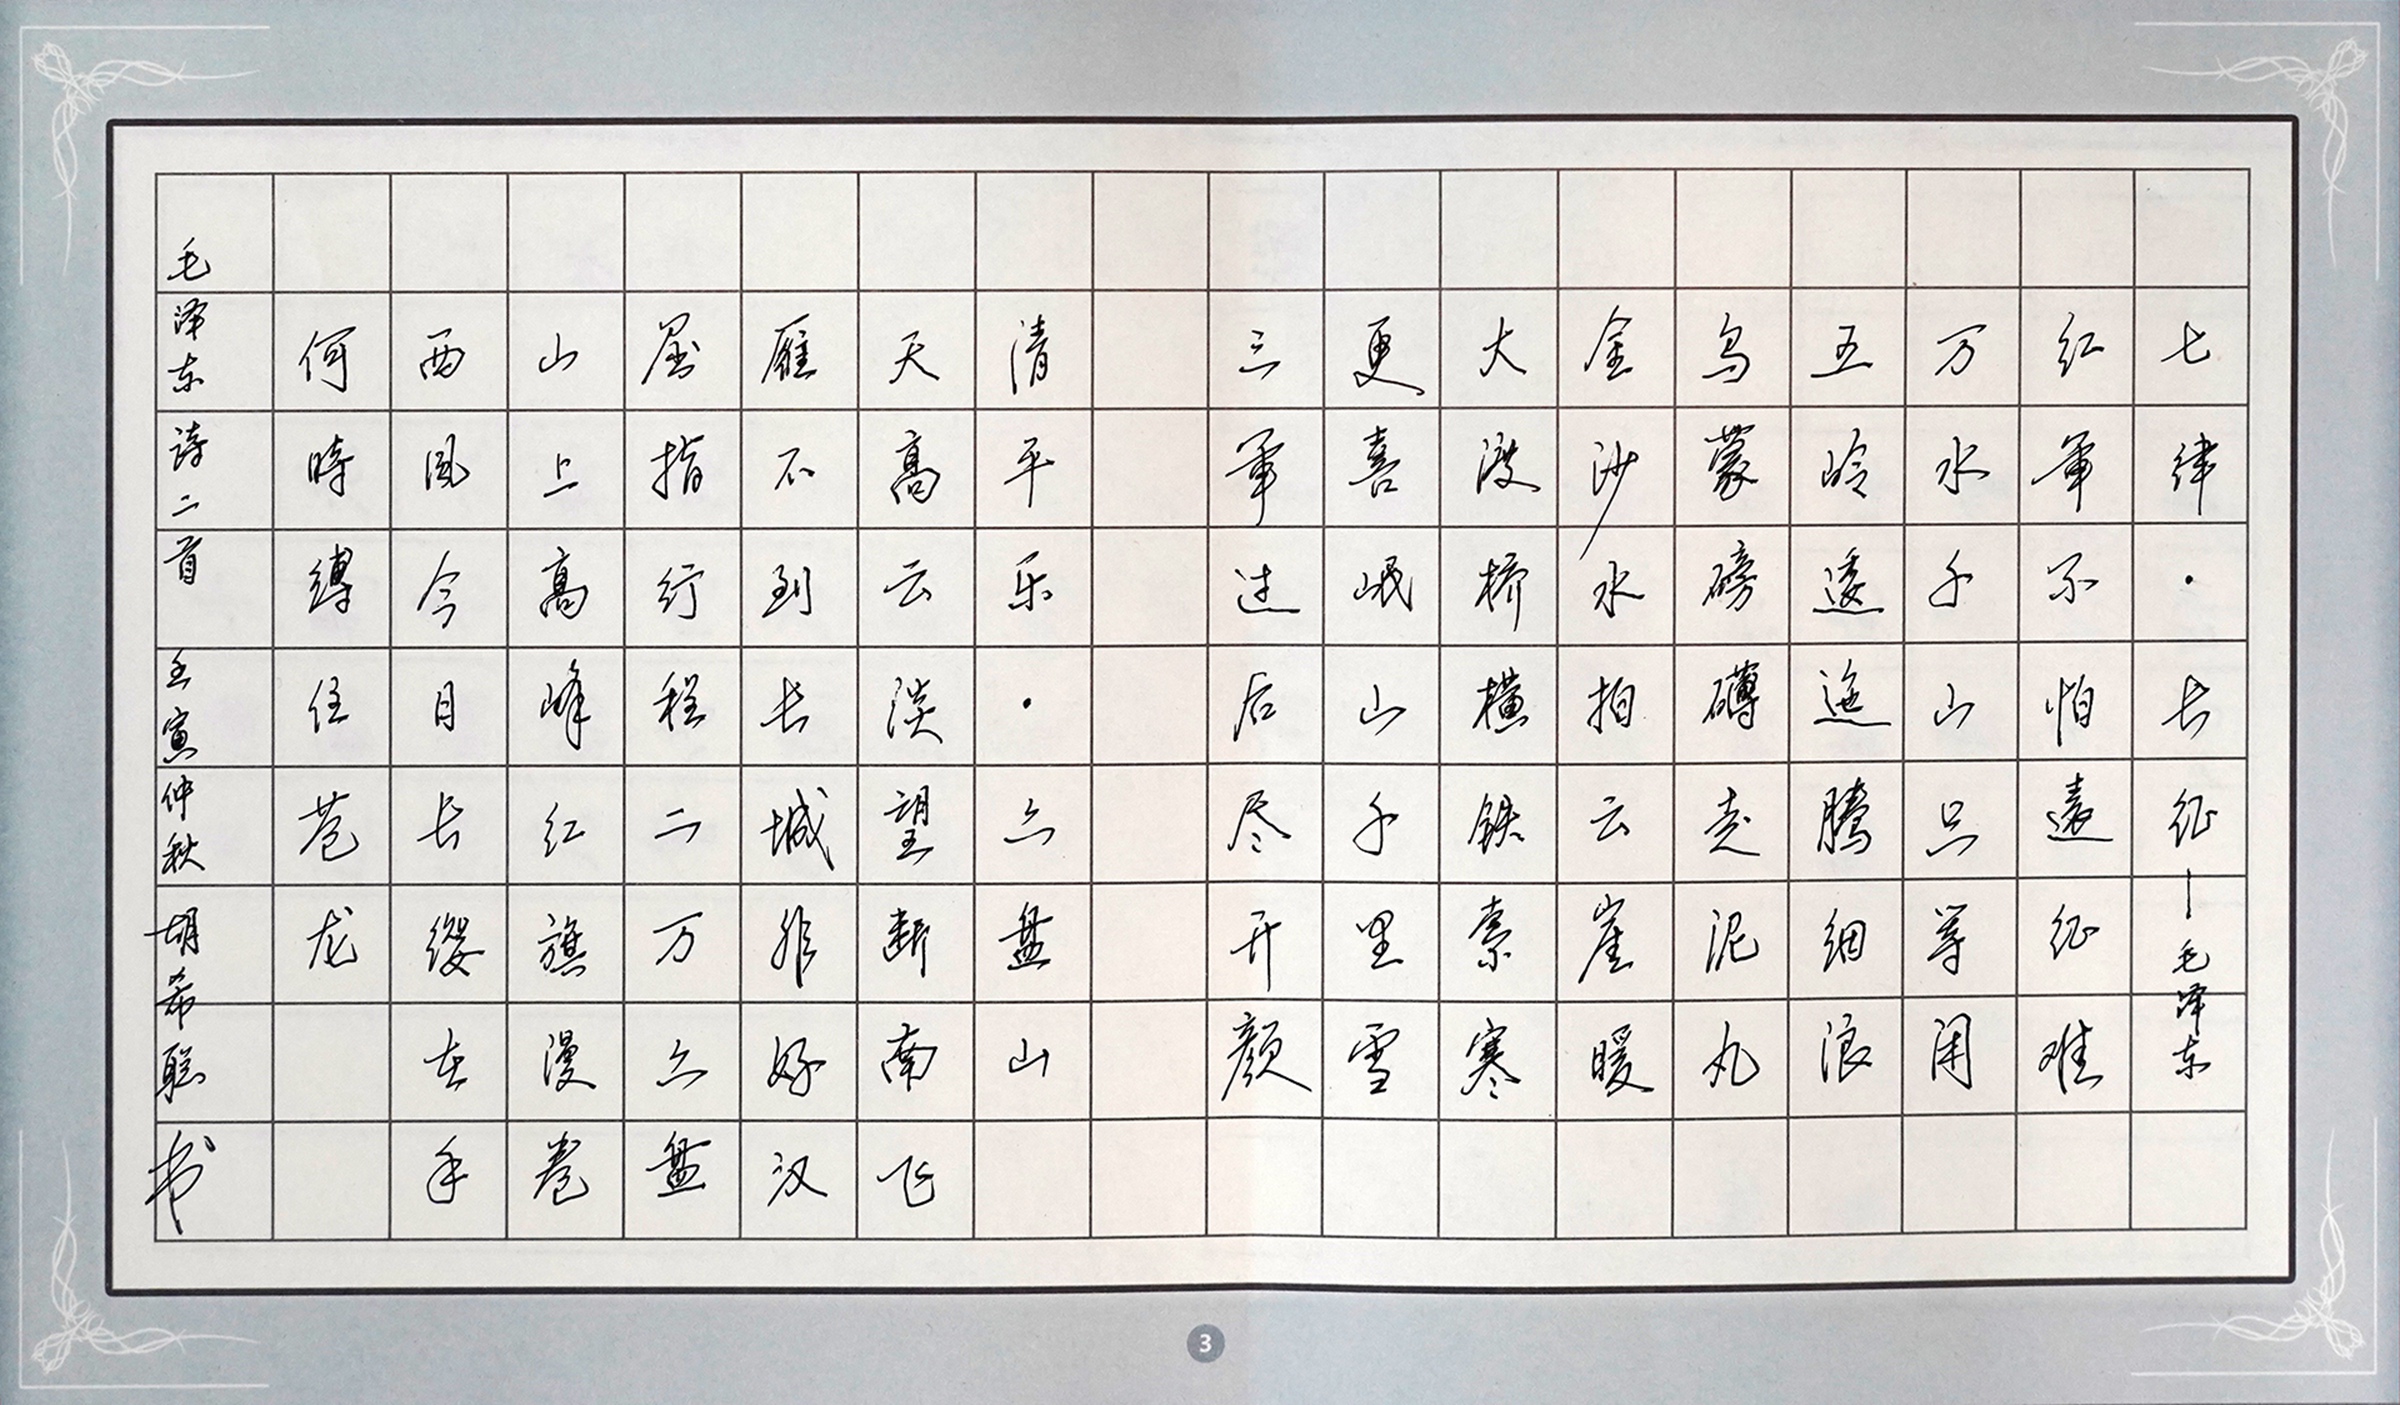 七律·长征—毛泽东
红军不怕遠征难
万水千山只等闲
五岭逶迤腾细浪
乌蒙磅礴走泥丸
金沙水拍云崖暖
大渡桥横铁索寒
更喜岷山千里雪
三军过后尽开颜
清平乐·六盘山
天高云淡望断南飞
雁不到长城非好汉
屈指行程二万六盘
山上高峰红旗漫卷
西风今日长缨在手
何時缚住苍龙
毛泽东诗二首 壬寅仲秋 胡希聪书
3